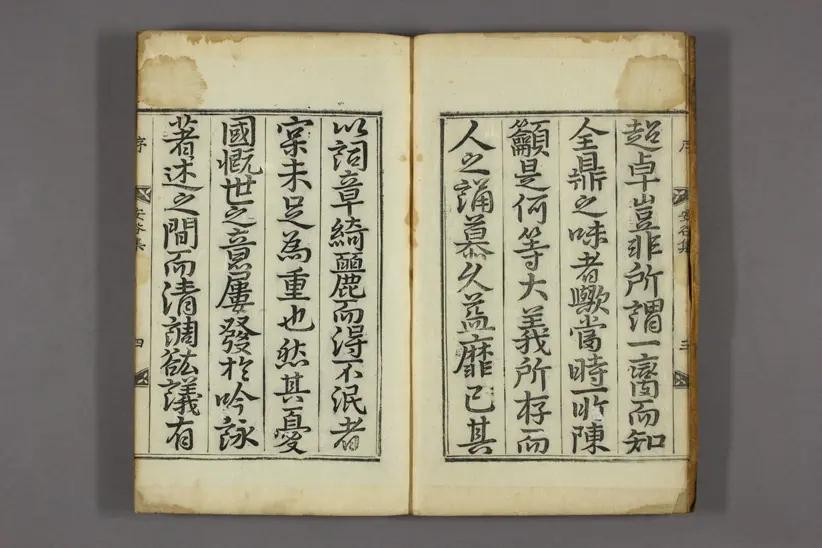 序 安谷集 三
超卓豈非所謂一臠而知
全鼎之味者歟當時所陳
籲是何等大義所存而
人之誦慕久益靡已其
以詞章綺麗而得不泯者
宲未足為重也然其憂
國慨世之意屢發於吟詠
著述之間而清調竑議有
序 安谷集 四